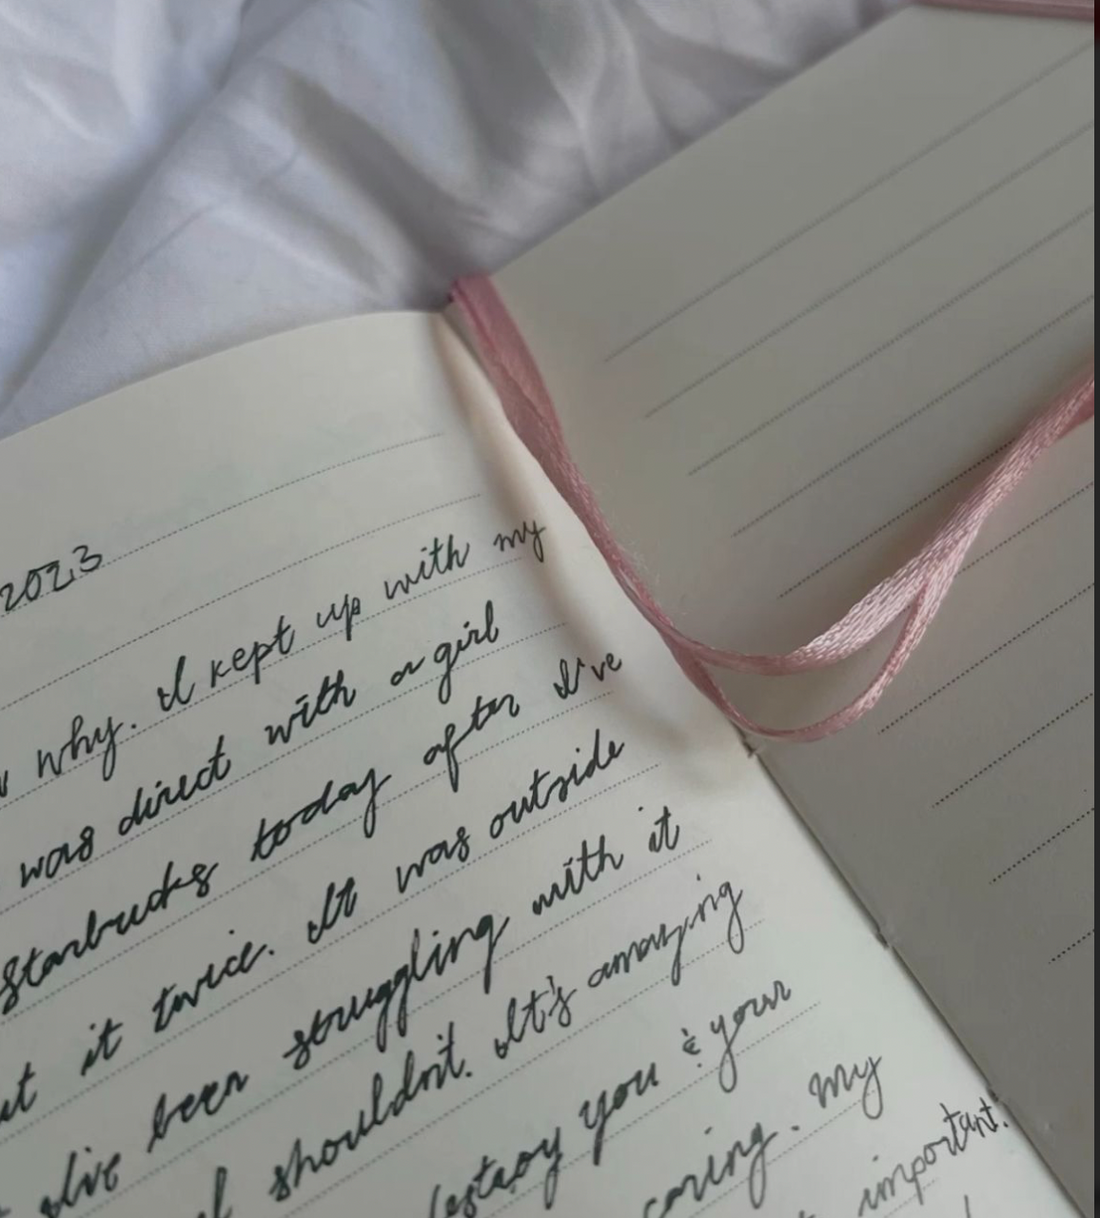 2023
why. I kept up with my
was direct with a girl
Starbucks today after I've
it twice. It was outside
I've been struggling with it
shouldn't. It's amazing
destroy you & your
caring. My
important.